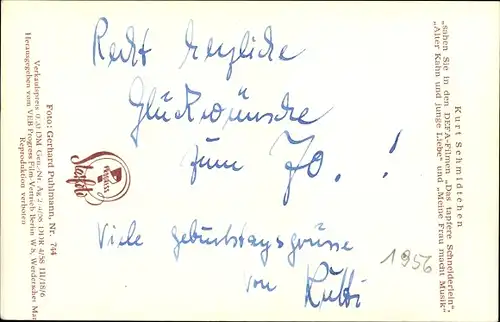 Recht herzliche
Glückwünsche
zum 70. !
Viele Geburtstagsgrüsse
von Kutti
1956
Kurt Schmidtchen
„sahen Sie in den DEFA-Filmen „Das tapfere Schneiderlein“,
„Alter Kahn und junge Liebe“ und „Meine Frau macht Musik“
Foto: Gerhard Puhlmann, Nr. 744
Verkaufspreis 0,20 DM Gen.-Nr. Ag 2 4/58 III/18/6
Herausgegeben vom VEB Progress Film-Vertrieb Berlin W 8,
Reproduktion verboten
PROGRESS
Starfoto